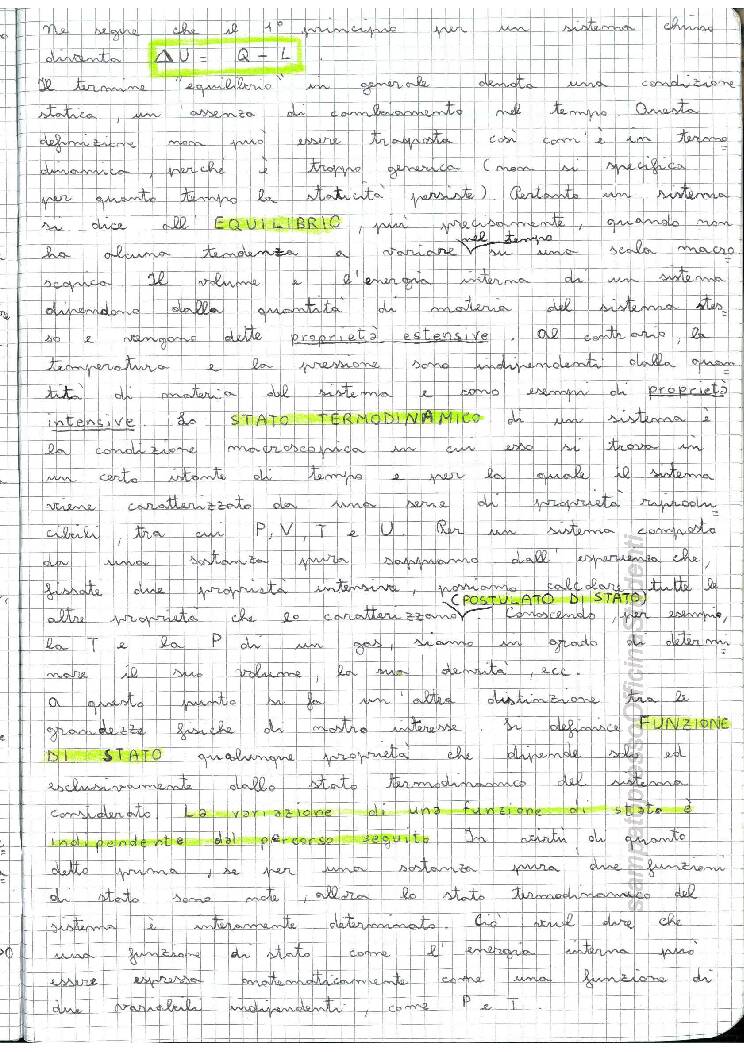 Ne segue che il 1° principio per un sistema chiuso
diventa ΔU = Q - L .
Il termine "equilibrio" in generale denota una condizione
statica, un'assenza di cambiamento nel tempo. Questa
definizione non può essere trasposta così com'è in termo
dinamica, perché è troppo generica (non si specifica
per quanto tempo la staticità persiste). Pertanto un sistema
si dice all'EQUILIBRIO, più precisamente, quando non
nel tempo
ha alcuna tendenza a variare su una scala macro=
scopica. Il volume e l'energia interna di un sistema
dipendono dalla quantità di materia del sistema stes=
so e vengono dette proprietà estensive. Al contrario, la
temperatura e la pressione sono indipendenti dalla quan=
tità di materia del sistema e sono esempi di proprietà
intensive. Lo STATO TERMODINAMICO di un sistema è
la condizione macroscopica in cui esso si trova in
un certo istante di tempo e per la quale il sistema
viene caratterizzato da una serie di proprietà riprodu=
cibili, tra cui P, V, T e U. Per un sistema composto
da una sostanza pura sappiamo dall'esperienza che,
fissate due proprietà intensive, possiamo calcolare tutte le
(POSTULATO DI STATO)
altre proprietà che lo caratterizzano. Conoscendo, per esempio,
la T e la P di un gas, siamo in grado di determi=
nare il suo volume, la sua densità, ecc.
A questo punto si fa un'altra distinzione tra le
grandezze fisiche di nostro interesse. Si definisce FUNZIONE
DI STATO qualunque proprietà che dipende solo ed
esclusivamente dallo stato termodinamico del sistema
considerato. La variazione di una funzione di stato è
indipendente dal percorso seguito. In virtù di quanto
detto prima, se per una sostanza pura due funzioni
di stato sono note, allora lo stato termodinamico del
sistema è interamente determinato. Ciò vuol dire che
una funzione di stato come l'energia interna può
essere espressa matematicamente come una funzione di
due variabili indipendenti, come P e T.
stampatopressoOfficinaStudenti